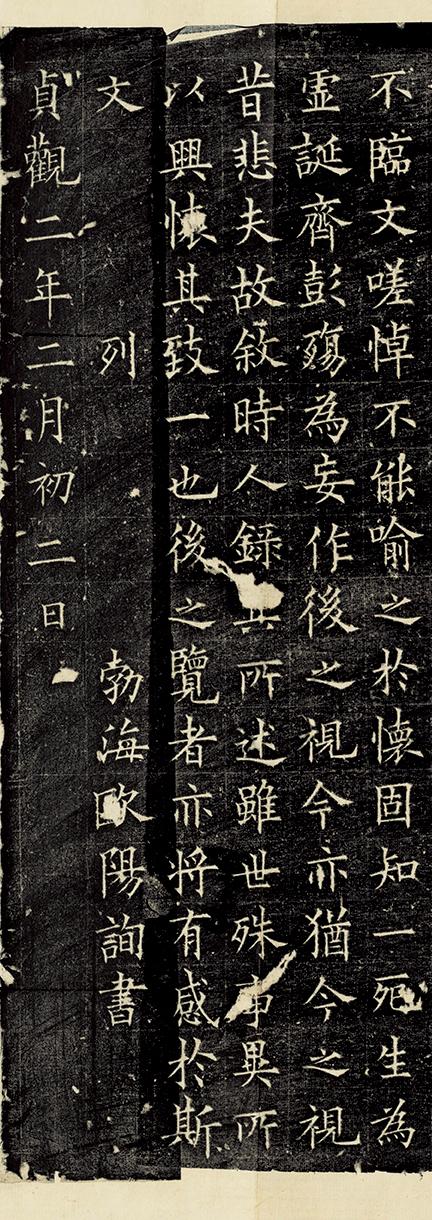 不臨文嗟悼不能喻之於懷固知一死生為
虛誕齊彭殤為妄作後之視今亦猶今之視
昔悲夫故敘時人錄其所述雖世殊事異所
以興懷其致一也後之覽者亦将有感於斯
文 列 勃海歐陽詢書
貞觀二年二月初二日